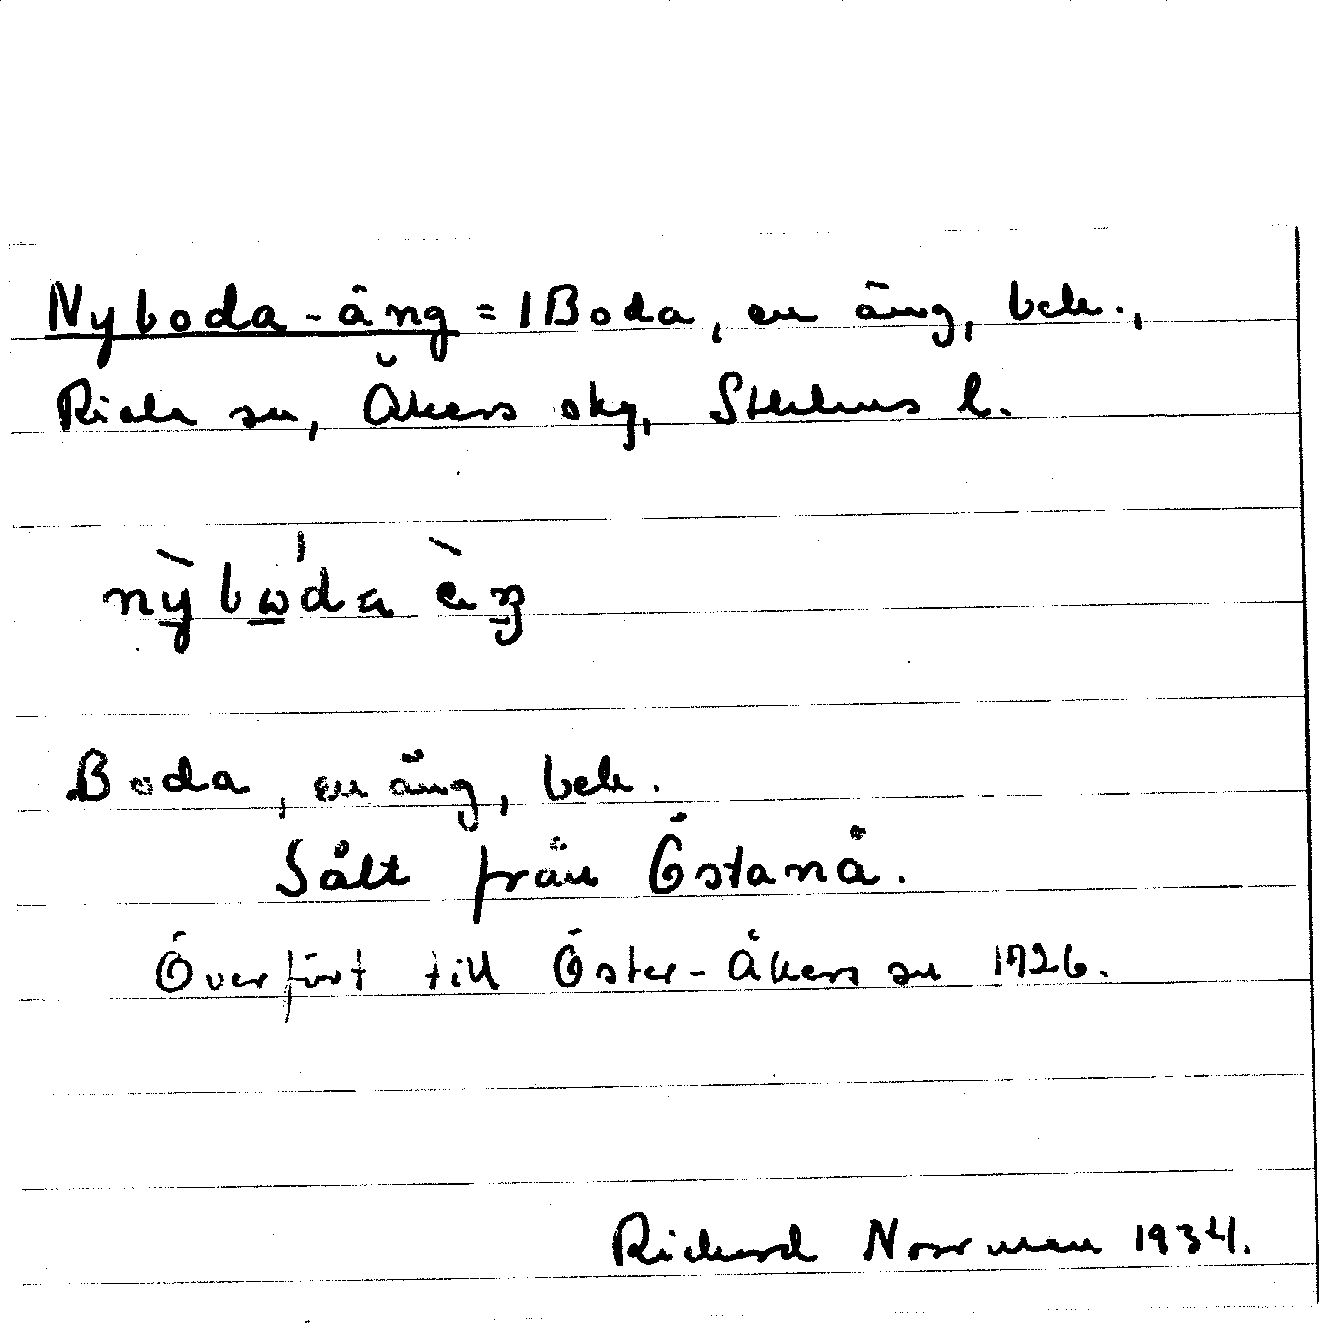 Nyboda-äng = 1 Boda, en äng, beb.,
Riala sn, Åkers skg, Sthlms l.
nỳbώ̲da èŋ
Boda, en äng, beb.
Sålt från Östanå.
Överfört till Öster-Åkers sn 1926.
Richard Norrman 1934.